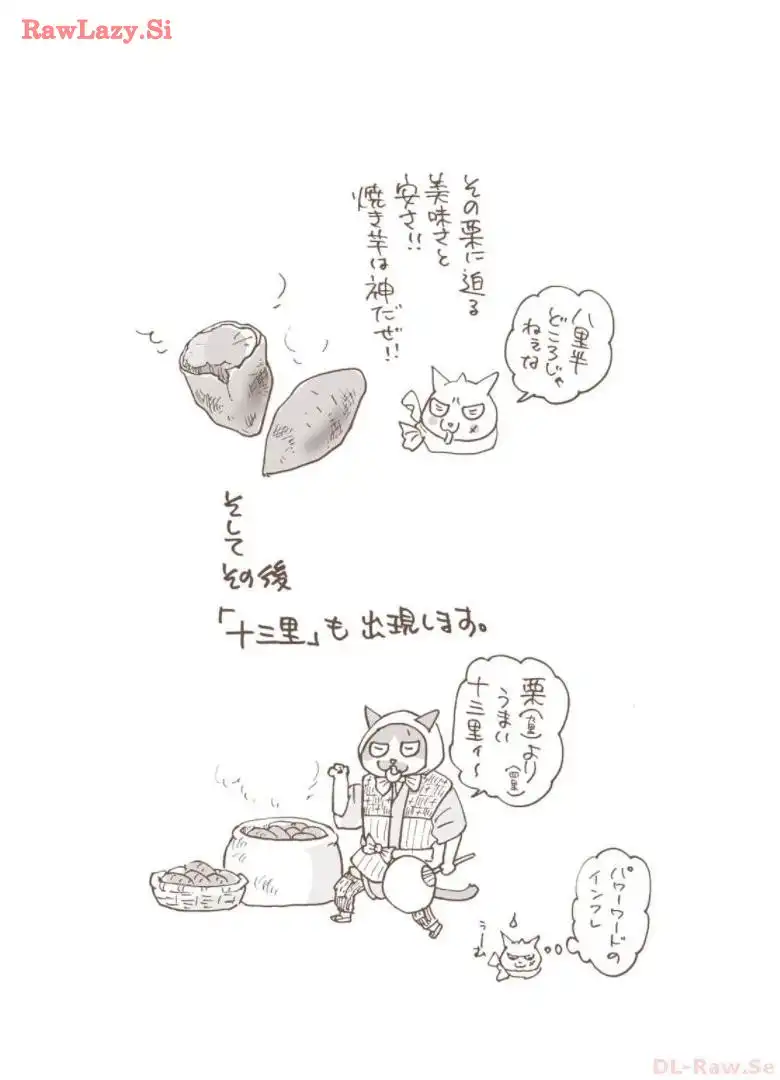 RawLazy.Si
その栗に迫る
美味さと
安さ!!
焼き芋は神だぜ!!
八里半
どころじゃ
ねぇな
そして
その後
「十三里」も出現します。
栗(九里)より(四里)
うまい
十三里ィ〜
パワーワードの
インフレ
うーむ
DL-Raw.Se